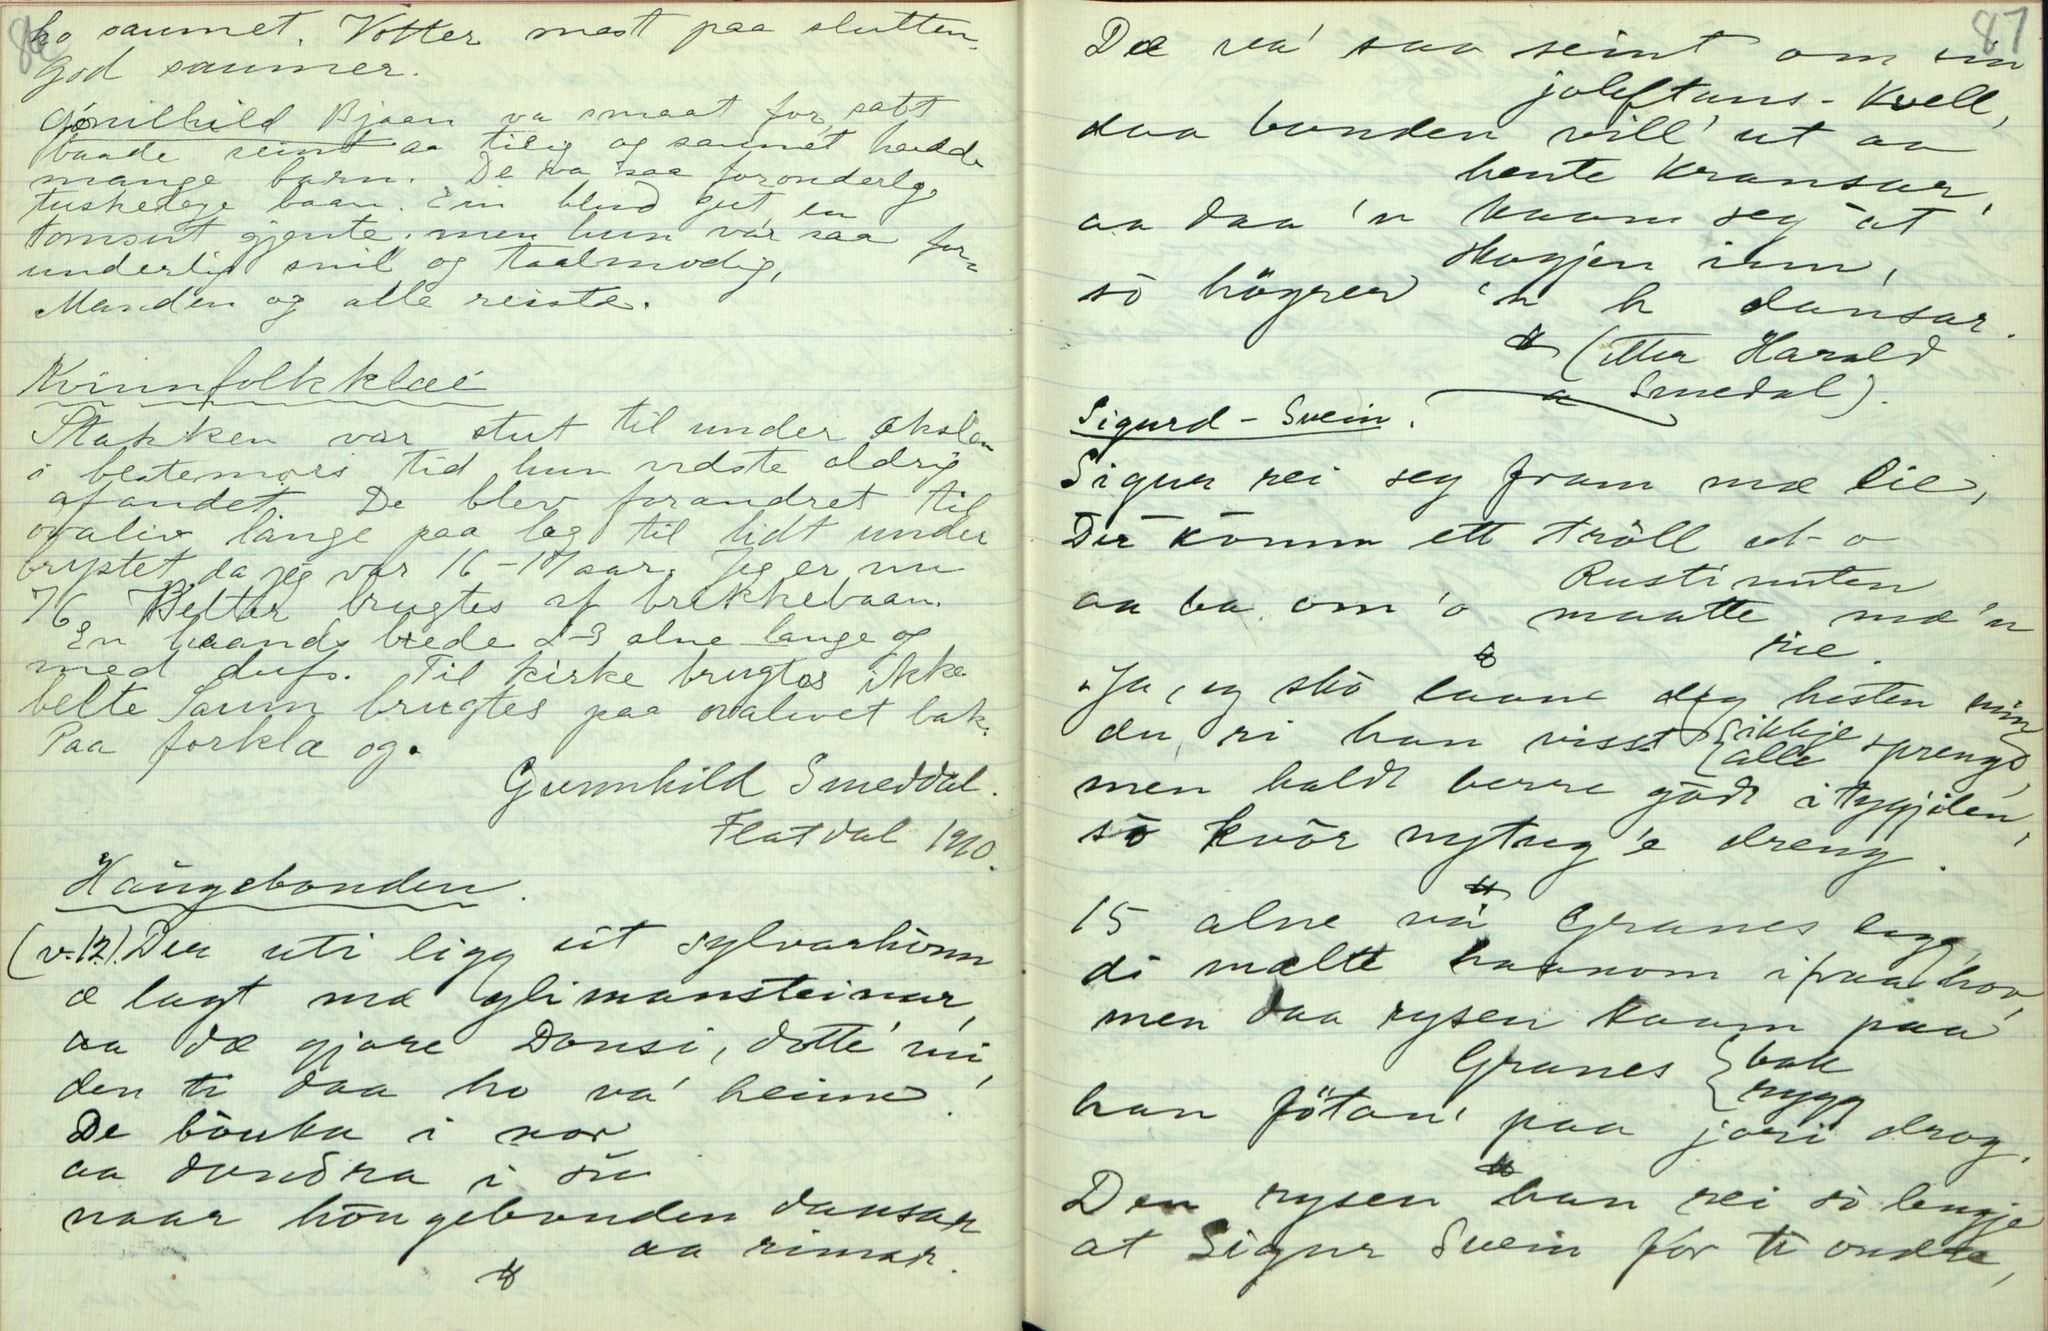 86
ho saumet. Votter mest paa slutten.
god saumer.
Gónilhild Bjaan va smaat for, satt
baade seint aa tilig og saumét hadde
mange barn. De va saa foronderleg
tuskelege baan. Ein blind gut, en
tomsut gjente. men hun var saa for-
underlig snil og taalmodig,
Manden og alle reiste.
Kvinnfolkklæé
Stakken var stut til under akslan
i bestemors tid hun vidste aldrig
af andet. De blev forandret til
ovaliv lange paa lag til lidt under
brystet da jeg var 16-17 aar. Jeg er nu
76 Belter brugtes af brikkebaan.
En haands brede 2-3 alne lange og
med dufs. Til kirke brugtes ikke
belte Saum brugtes paa ovalivet bak.
Paa forklæ og.
Gunnhild Smeddal.
Flatdal 1910.
Haugebonden.
(v. 12). Der uti ligg eit sylvarhonn
æ lagt mæ glimansteinar,
aa dæ gjore Donsi, dotte' mi,
den ti daa ho va' heime.
De bouka i nor
aa dondra i sø
naar hougebonden dansar
aa rimar.
87
Dæ va' saa seint om ein
joleftans-kvell,
daa bonden vill' ut aa
hente kransar,
aa daa 'n kaam seg at
skogjen inn,
so høyrer 'n h dansar.
(etter Harald
Smedal).
Sigurd-Svein.
Sigur rei seg fram mæ lie,
Der komm ett trøll ut-o
Rustinuten
aa ba om 'o maatte mæ 'n
rie.
"Ja, eg sko laane deg hesten min
du ri han visst {ikkje / alle} spreng,
men haldt berre godt i tygjilen,
so kvor nytug 'e dreng.
15 alne va' Granes legg,
di mælte haanom ifraa hov,
men daa rysen kaam paa
Granes {bak / rygg}
han føtan' paa jori drog.
Den rysen han rei so lengje
at Sigur Svein for ti ondre,